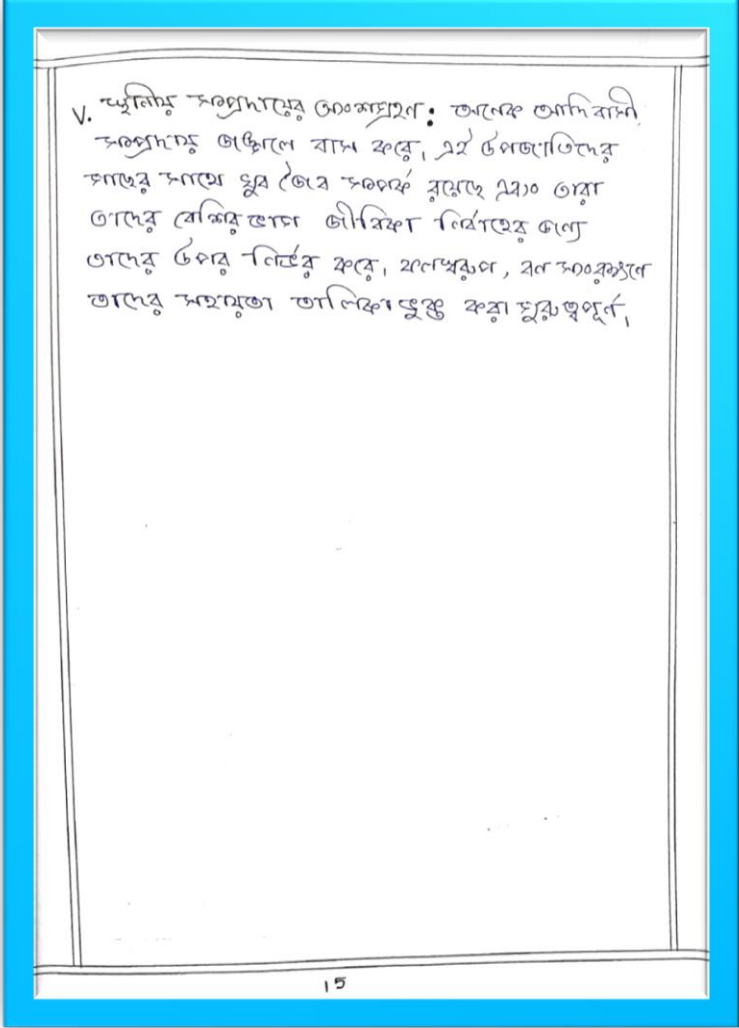 V. স্থানীয় সম্প্রদায়ের অংশগ্রহণ : অনেক আদিবাসী
সম্প্রদায় জঙ্গলে বাস করে। এই উপজাতিদের
গাছের সাথে খুব জৈব সম্পর্ক রয়েছে এবং তারা
তাদের বেশির ভাগ জীবিকা নির্বাহের জন্যে
তাদের উপর নির্ভর করে। ফলস্বরূপ, বন সংরক্ষণে
তাদের সহায়তা তালিকাভুক্ত করা গুরুত্বপূর্ণ।
15